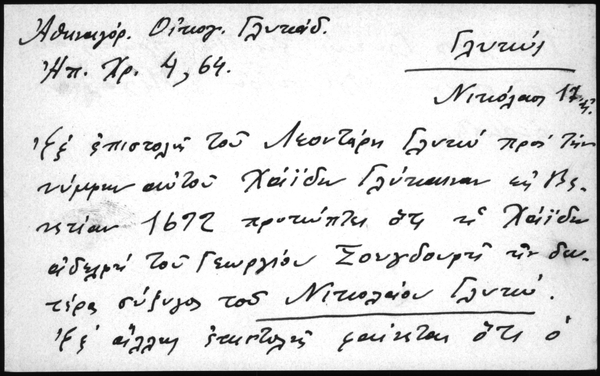 Ἀθηναγόρ. Οἰκογ. Γλυκάδ.
Ἠπ. Χρ. 4, 64.
Γλυκύς
Νικόλαος 17
Ἐξ ἐπιστολῆς τοῦ Λεοντάρη Γλυκύ πρός τήν
νύμφην αὐτοῦ Χάϊδω Γλύκαιναν εἰς Βε-
νετίαν 1672 προκύπτει ὅτι ἡ Χάϊδω
ἀδελφή τοῦ Γεωργίου Σουγδουρῆ ἦν δευ-
τέρα σύζυγος τοῦ Νικολαίου Γλυκύ.
Ἐξ ἄλλης ἐπιστολῆς φαίνεται ὅτι ὁ